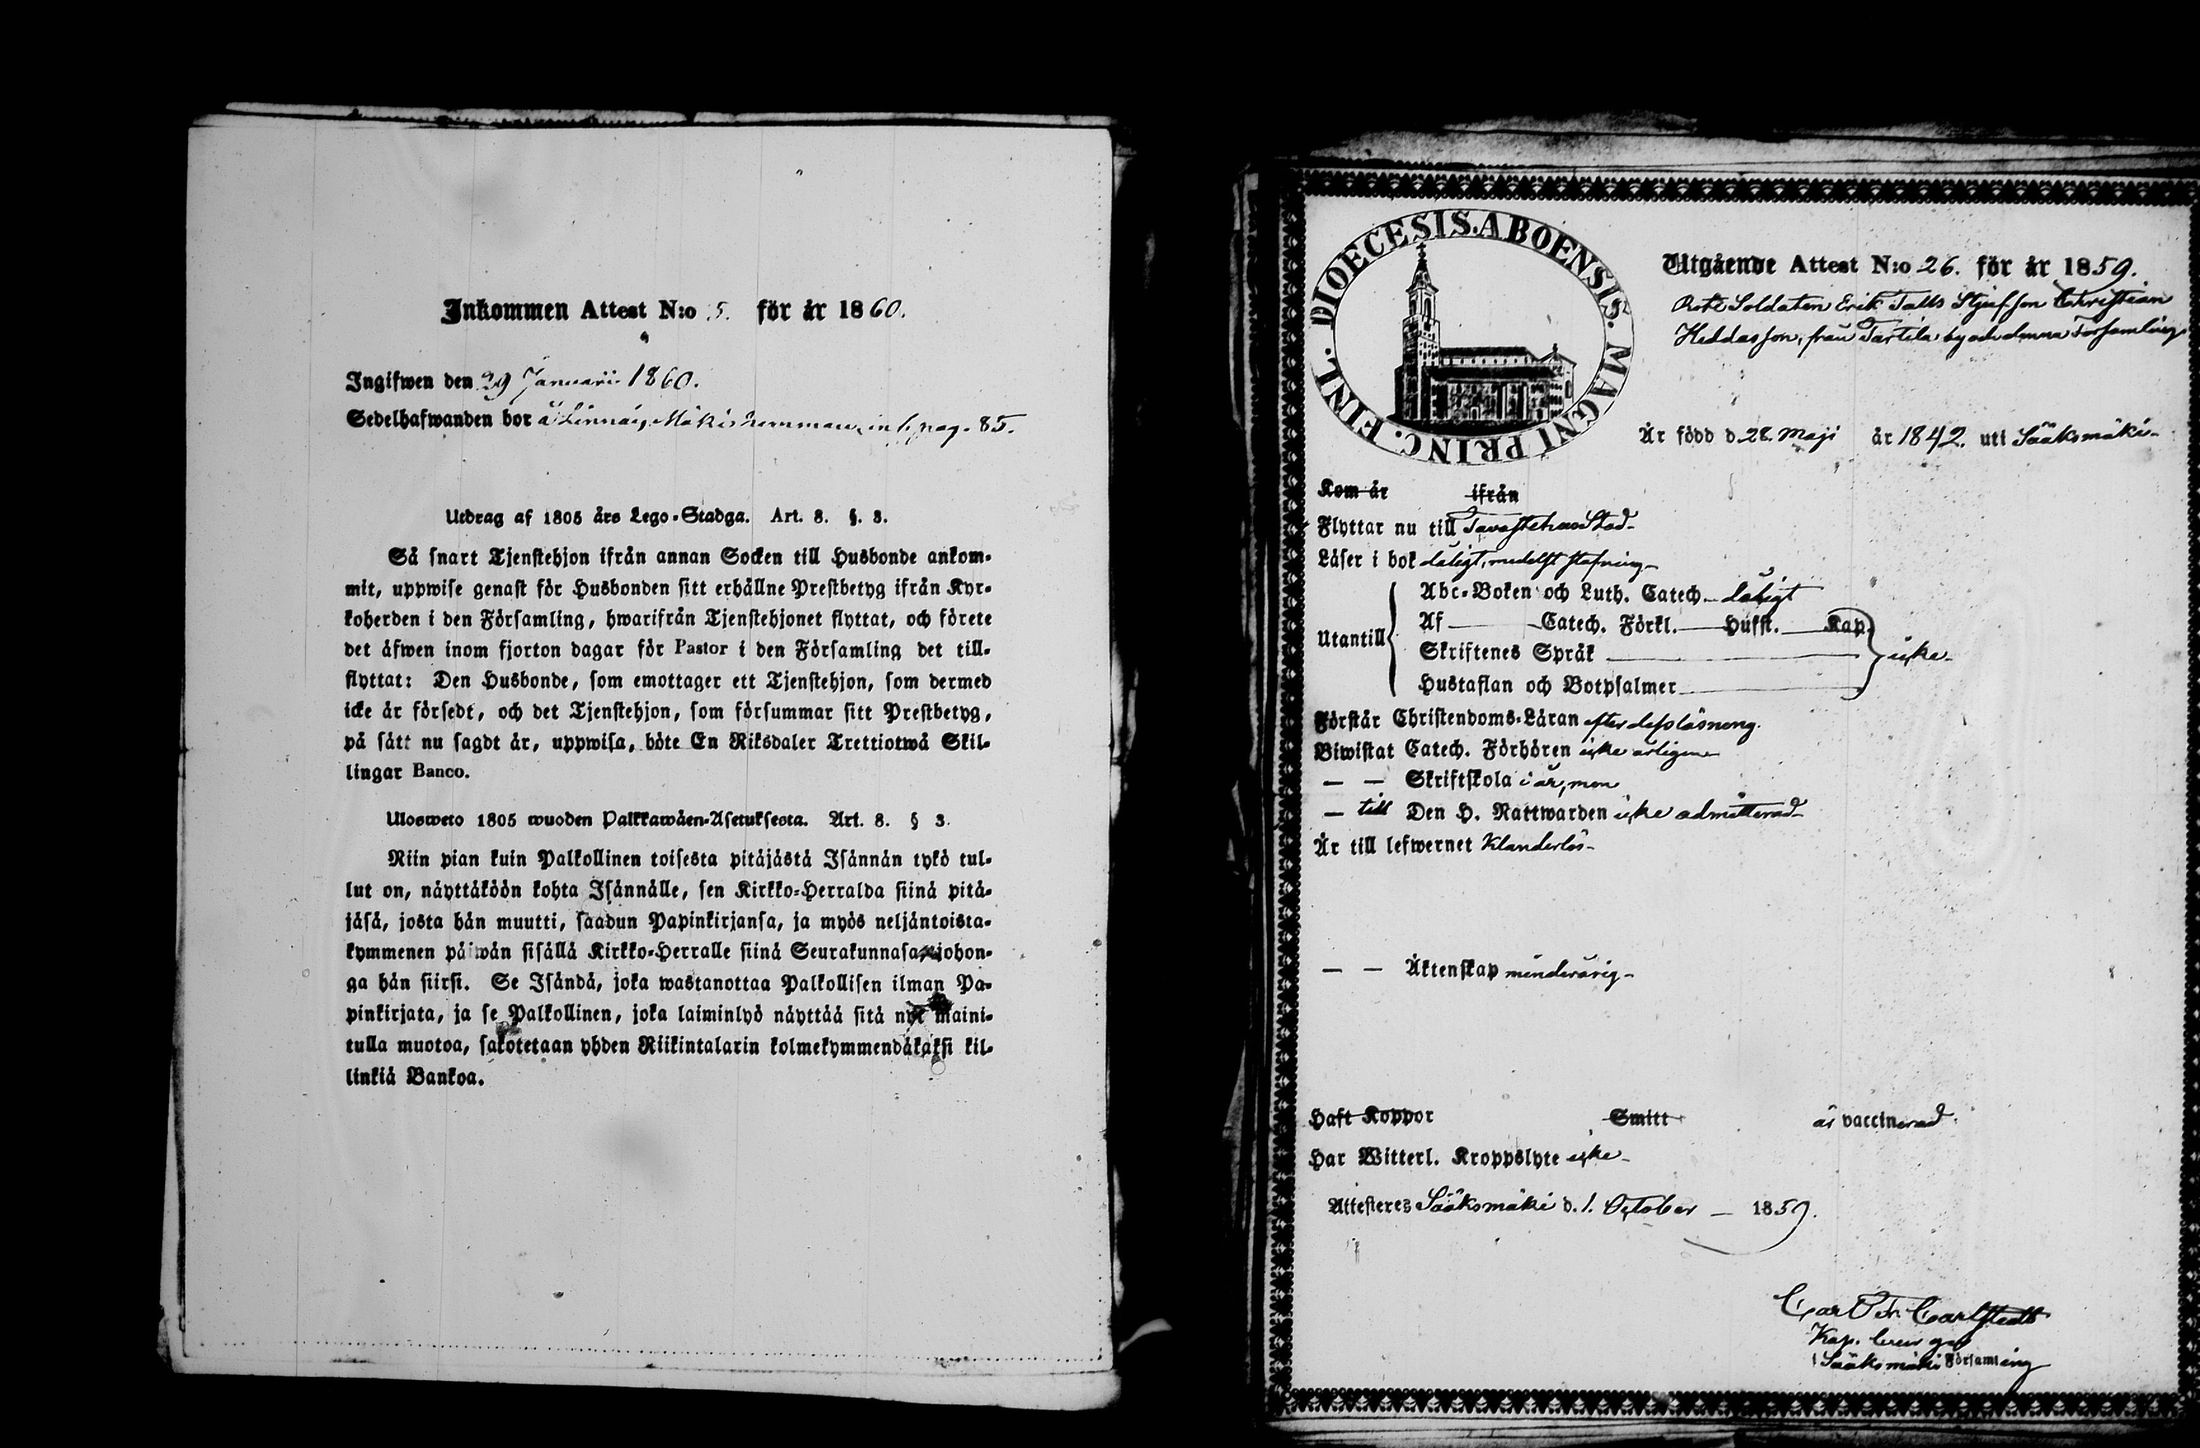 Inkommen Attest N:o 5. för år 1860.
Ingifwen den 29 Januari 1860.
Sedelhafwanden bor å Mäkis hemman, in l. pag. 85.
Utdrag af 1805 års Lego-Stadga. Art. 8. §. 3.
Så snart Tjenstehjon ifrån annan Socken till Husbonde ankom-
mit, uppwise genast för Husbonden sitt erhållne Prestbetyg ifrån Kyr-
koherden i den Församling, hwarifrån Tjenstehjonet flyttat, och förete
det äfwen inom fjorton dagar för Pastor i den Församling det till-
flyttat: Den Husbonde, som emottager ett Tjenstehjon, som dermed
icke är försedt, och det Tjenstehjon, som försummar sitt Prestbetyg,
på sätt nu sagdt är, uppwisa, böte En Riksdaler Trettiotwå Skil-
lingar Banco.
Ulosweto 1805 wuoden Palkkawäen-Asetuksesta. Art. 8. § 3.
Niin pian kuin Palkollinen toisesta pitäjästä Isännän tykö tul-
lut on, näyttäköön kohta Isännälle, sen Kirkko-Herralda siinä pitä-
jäsä, josta hän muutti, saadun Papinkirjansa, ja myös neljäntoista-
kymmenen päiwän sisällä Kirkko-Herralle siinä Seurakunnasa johon-
ga hän siirsi. Se Isändä, joka wastanottaa Palkollisen ilman Pa-
pinkirjata, ja se Palkollinen, joka laiminlyö näyttää sitä nyt maini-
tulla muotoa, sakotetaan yhden Riikintalarin kolmekymmendäkaksi kil-
linkiä Bankoa.
DIOECESIS.ABOENSIS. MAGNI PRINC. FINL.
Utgående Attest N:o 26. för år 1859.
Rote Soldaten Erik Talls Stjufson Christian
Heddasson, från Tarttila by och denna Församling
Är född d. 28. Maji år 1842. uti Sääksmäki
Kom år ifrån
Flyttar nu till Tavastehus Stad
Läser i bok dåligt, medelst stafning
Abc-Boken och Luth. Catech. dåligt
Utantill
Af Catech. Förkl. Hufst. Kap.
Skriftenes Språk icke
Hustaflan och Botpsalmer
Förstår Christendoms-Läran efter dess läsning.
Biwistat Catech. Förhören icke årligen
— — Skriftskola i år, men
— till Den H. Nattwarden icke admitterad
Är till lefwernet Klanderlös
— — Äktenskap minderårig
Haft Koppor Smitt är vaccinerad.
Har Witterl. Kroppslyte icke
Attesteres Sääksmäki d. 1. October — 1859.
Carl Carlstedt
Kap.
i Sääksmäki Församling